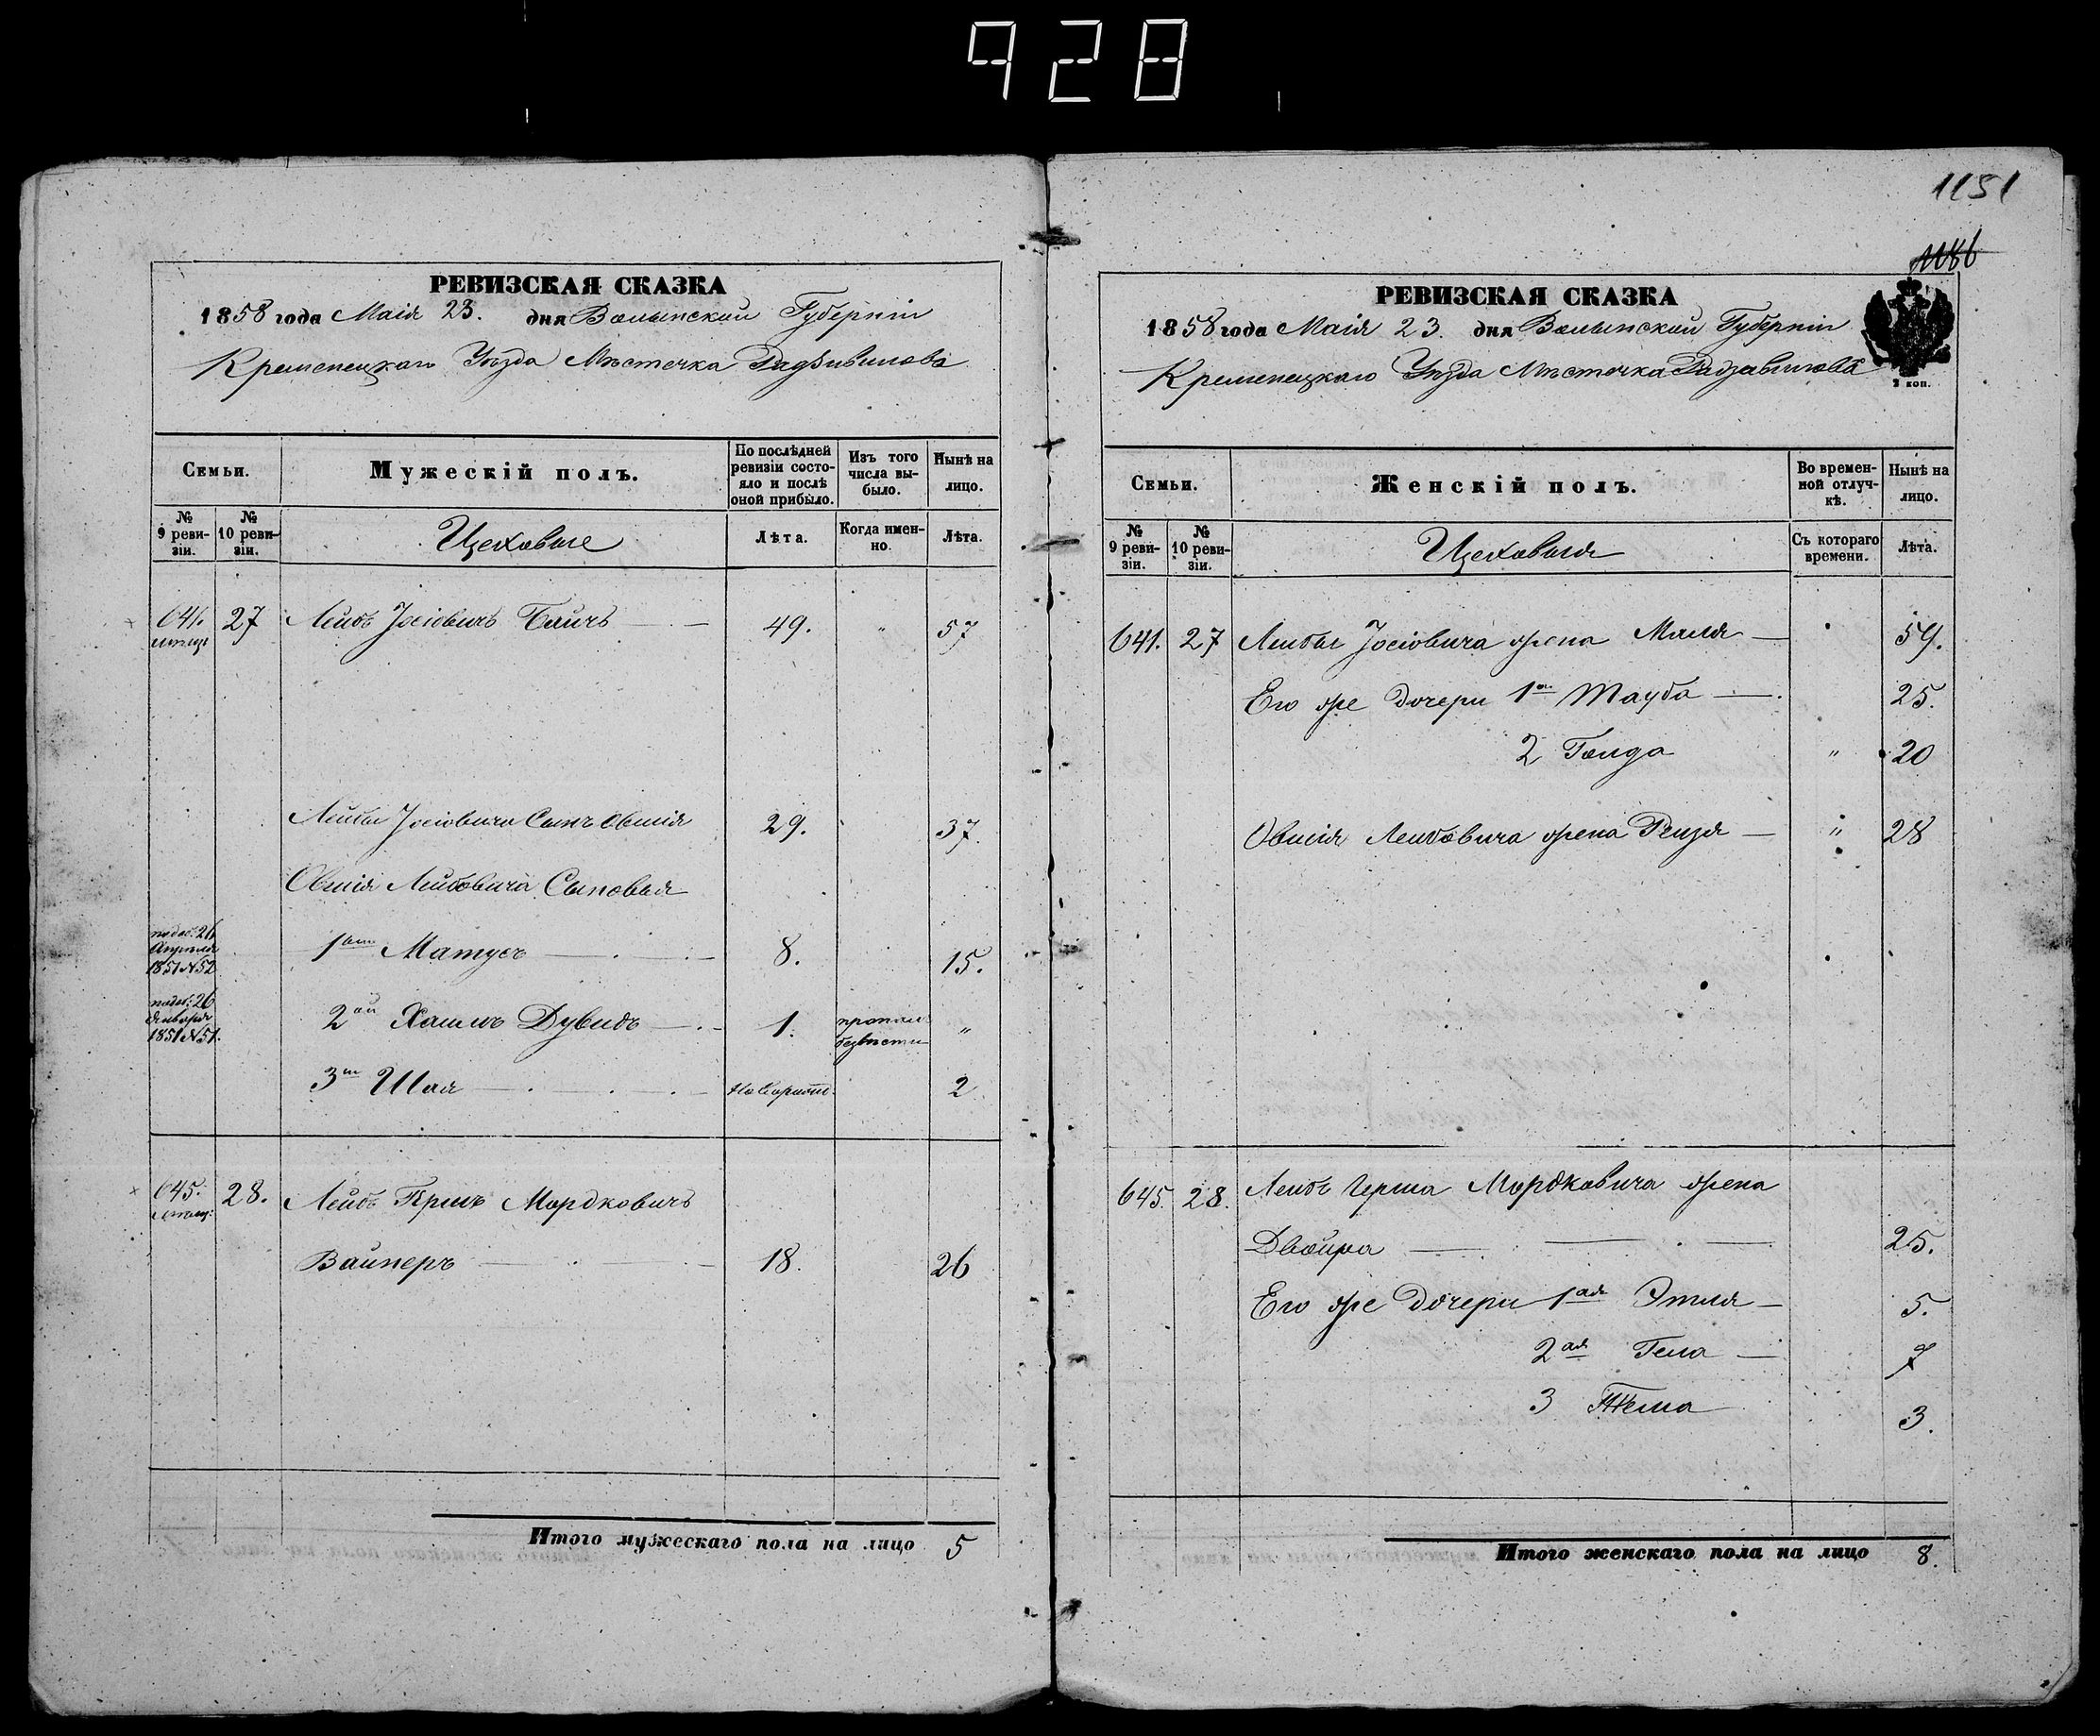 928
РЕВИЗСКАЯ СКАЗКА
1858 года Маія 23. дня Волынской Губерніи
Кременецкаго Уѣзда Мѣстечка Радзивилова
Семьи.
Мужескій полъ.
По послѣдней ревизіи состояло и послѣ оной прибыло.
Изъ того числа выбыло.
Нынѣ на лицо.
№ 9 ревизіи.
№ 10 ревизіи.
Цеховые
Лѣта.
Когда именно.
Лѣта.
641. 27 Лейбъ Іосіовичъ 49. " 57
Лейбы Іосіовича Сынъ Овшія 29. 37.
Овшія Лейбовича Сыновья
1 Матусъ 8. 15.
1851 №52
2ой Хаимъ Дувидъ 1. пропалъ безвѣсти "
1851 №51.
3 Шая 2
645. 28. Лейбъ Гершъ Мордковичъ
Вайнеръ 18. 26
Итого мужескаго пола на лицо 5
1151
РЕВИЗСКАЯ СКАЗКА
1858 года Маія 23. дня Волынской Губерніи
Кременецкаго Уѣзда Мѣстечка Радзивилова
2 коп.
Семьи.
Женскій полъ.
Во временной отлучкѣ.
Нынѣ на лицо.
№ 9 ревизіи.
№ 10 ревизіи.
Цеховыя
Съ котораго времени.
Лѣта.
641. 27 Лейбы Іосіовича жена Маля
Его же дочери 1ая Тауба 25.
2 Голда " 20
Овшія Лейбовича жена Рейзя " 28
645. 28. Лейбъ Герша Мордковича жена
Двойра 25.
Его же дочери 1ая Этля 5.
2ая Гела 7
3 3.
Итого женскаго пола на лицо 8.